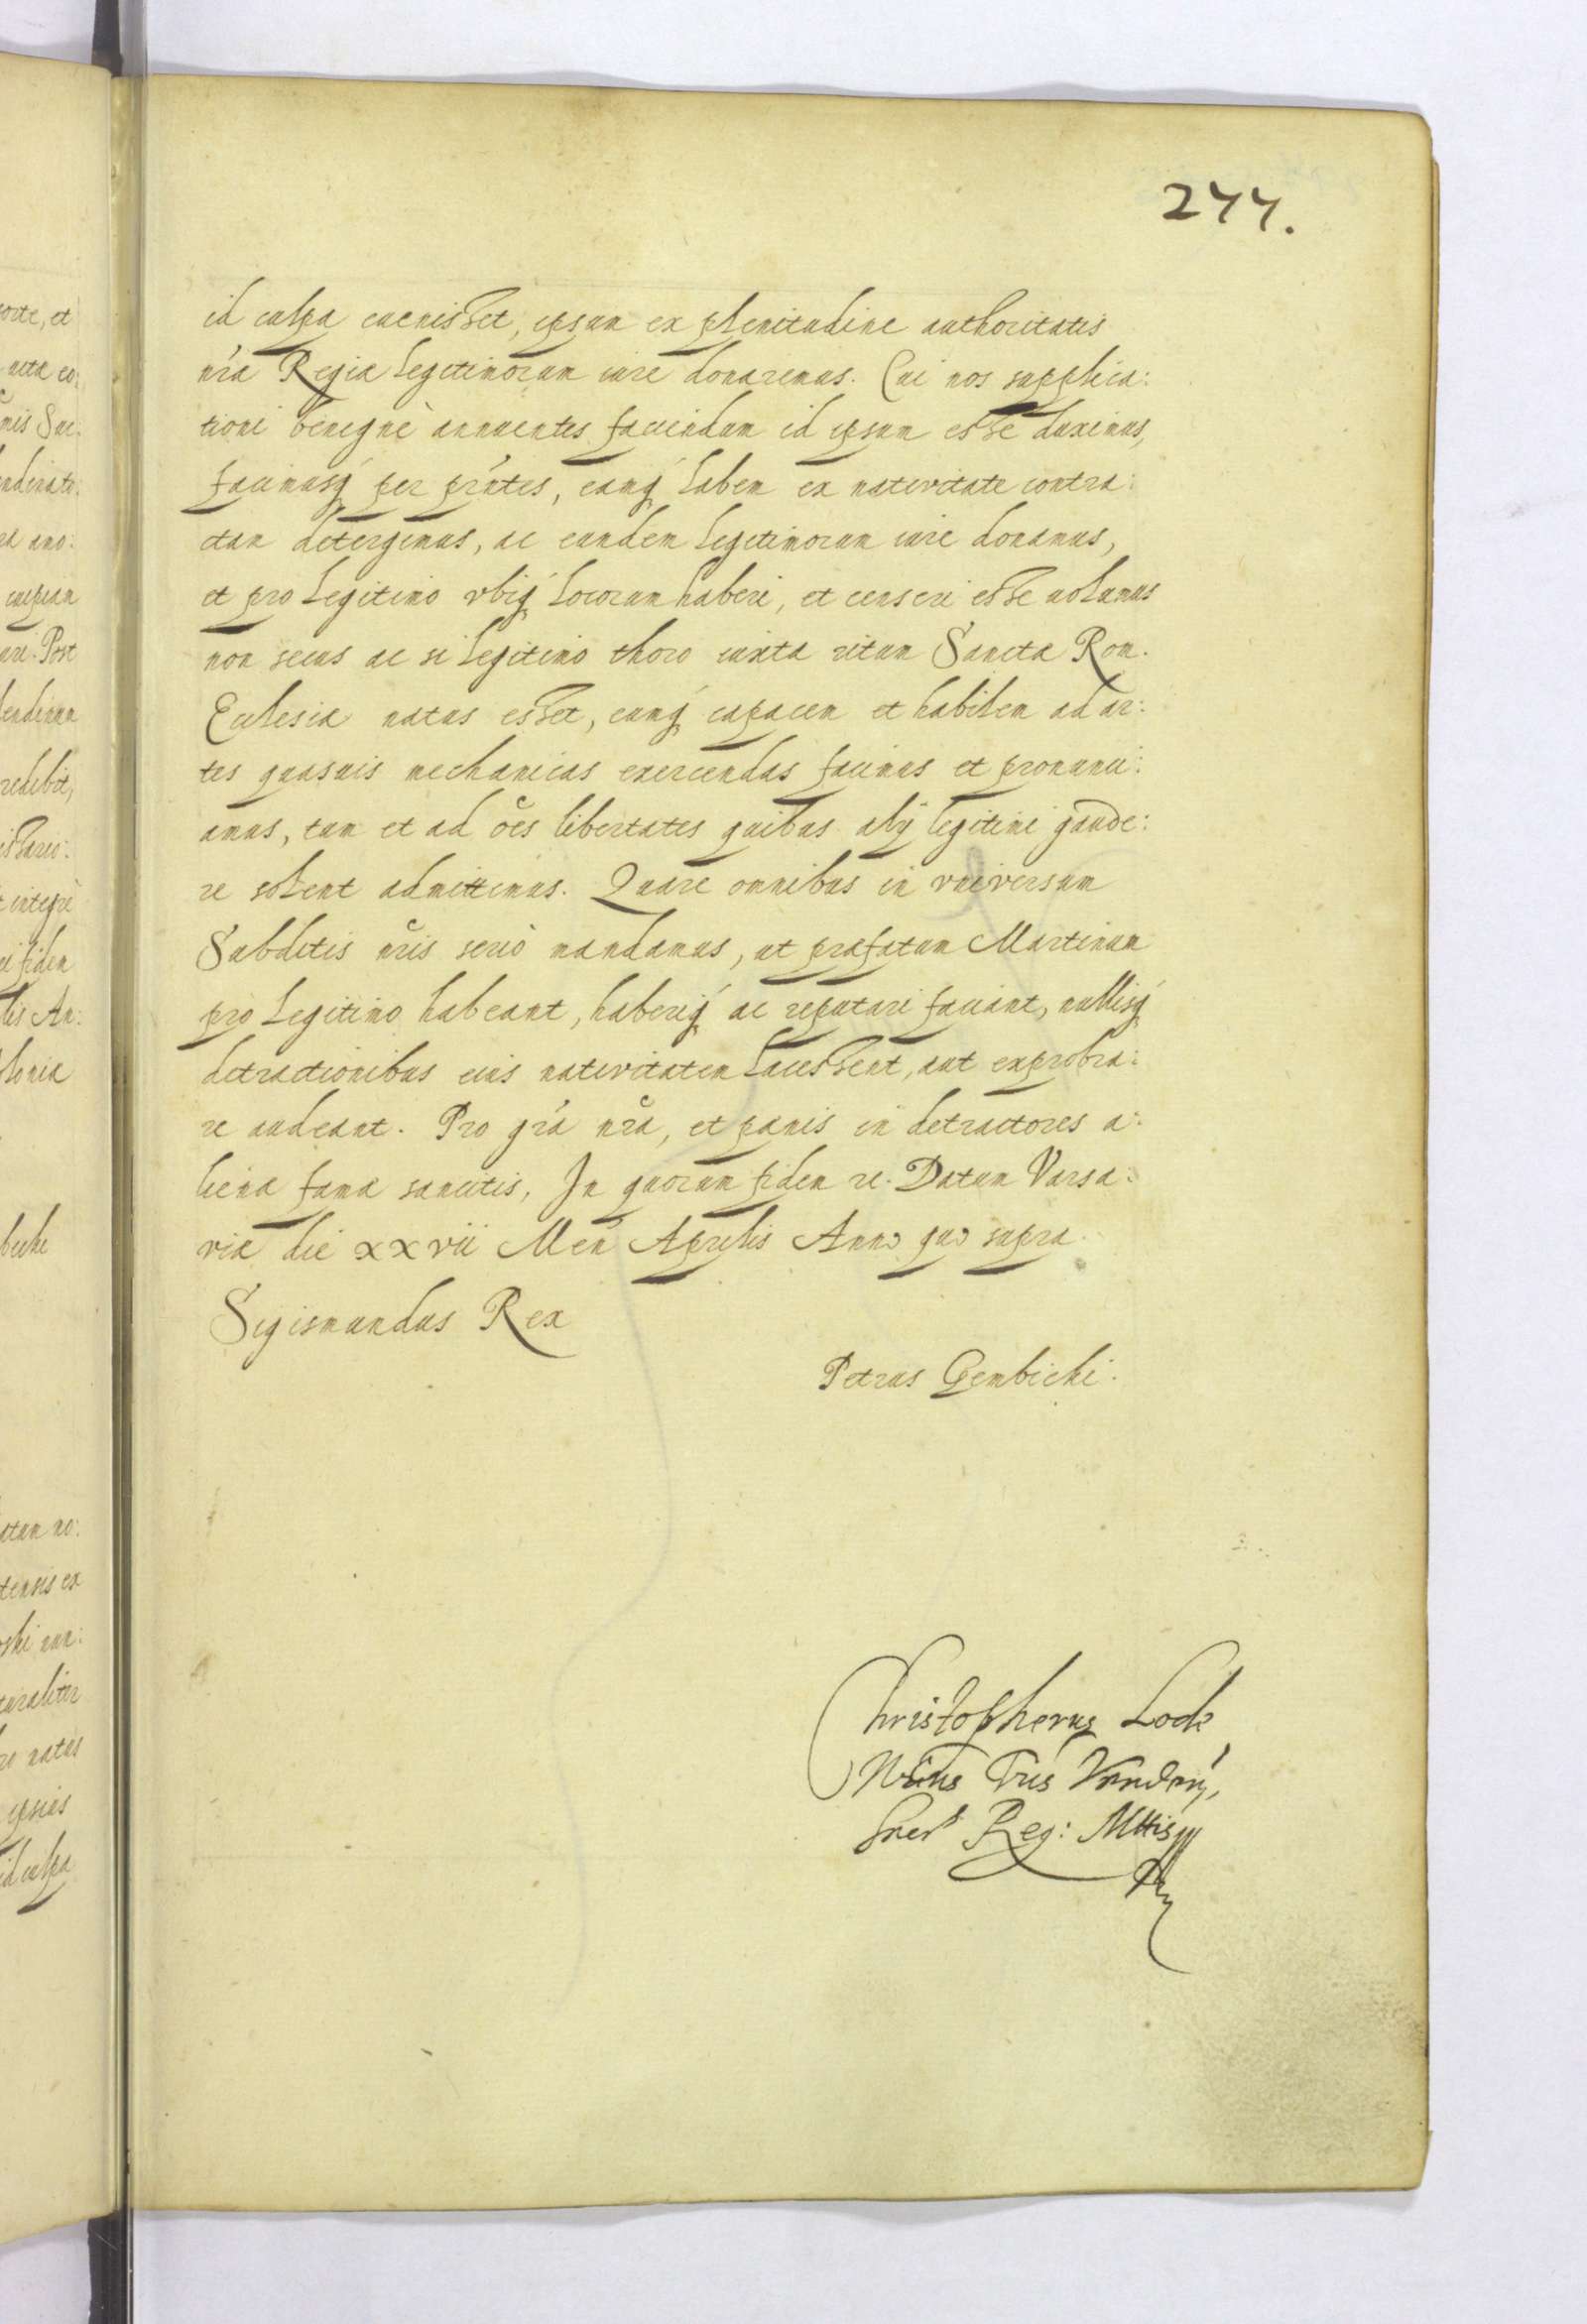 277.
id culpa euenisset, ipsum ex plenitudine authoritatis
nr̃a Regia legitimorum iure donaremus. Cui nos supplica:
tioni benignè annuentes faciendum id ipsum esse duximus,
facimusq́ per pr̃ntes, eamq́ labem ex nativitate contra:
ctam detergimus, ac eundem legitimorum iure donamus,
et pro legitimo vbiq́ locorum haberi, et censeri esse uolumus
non secus ac si legitimo thoro iuxta ritum Sancta Rom.
Ecclesia natus esset, eumq́ capacem et habilem ad ar:
tes quasuis mechanicas exercendas facimus et pronunci:
amus, tum et ad oẽs libertates quibus alij legitimi gaude:
re solent admittimus. Quare omnibus in vniversum
Subditis nr̃is seriò mandamus, ut præfatum Martinum
pro legitimo habeant, haberiq́ ac reputari faciant, nullisq́
detractionibus eius nativitatem lacessent, aut exprobra:
re audeant. Pro gr̃a nr̃a, et pænis in detractores a:
liena fama sancitis, In quorum fidem rc. Datum Varsa:
via die xxvii Men̄ Aprilis Anno quo supra.
Sigismundus Rex
Petrus Gembicki.
Christopherus Lock
Reg: Mttis
orte, et
acta co:
nis Sue:
ndinate:
ra ano:
cuipiam
uri. Post
lendinum
redibit,
issario:
t integrè
ei fidem
lis An:
lonia
bicki
atum no:
tensis ex
oski nun:
turaliter
ro natus
ipsius
id culpa